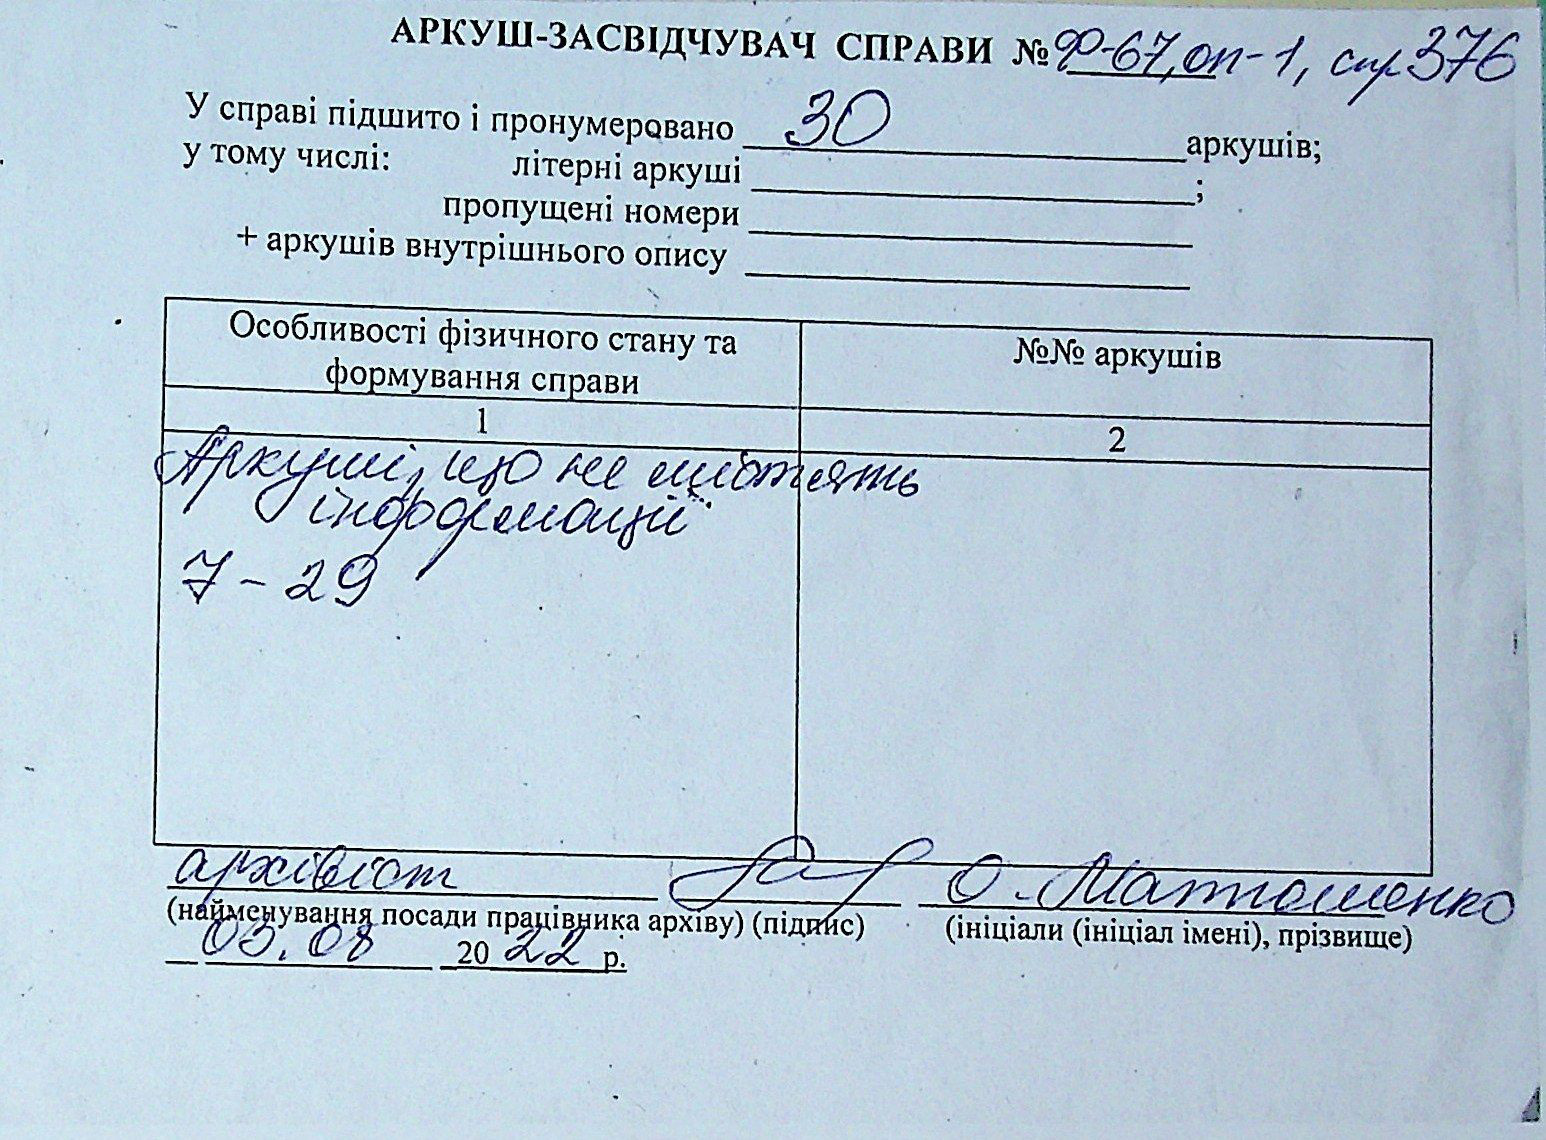 АРКУШ-ЗАСВІДЧУВАЧ СПРАВИ № Ф-67, оп-1, спр 376
У справі підшито і пронумеровано 30 аркушів;
у тому числі: літерні аркуші ;
пропущені номери
+ аркушів внутрішнього опису
Особливості фізичного стану та формування справи
№№ аркушів
1
2
Аркуші, що не містять
інформації
7 - 29
архівіст О. Матюшенко
(найменування посади працівника архіву) (підпис) (ініціали (ініціал імені), прізвище)
03.08 2022 р.